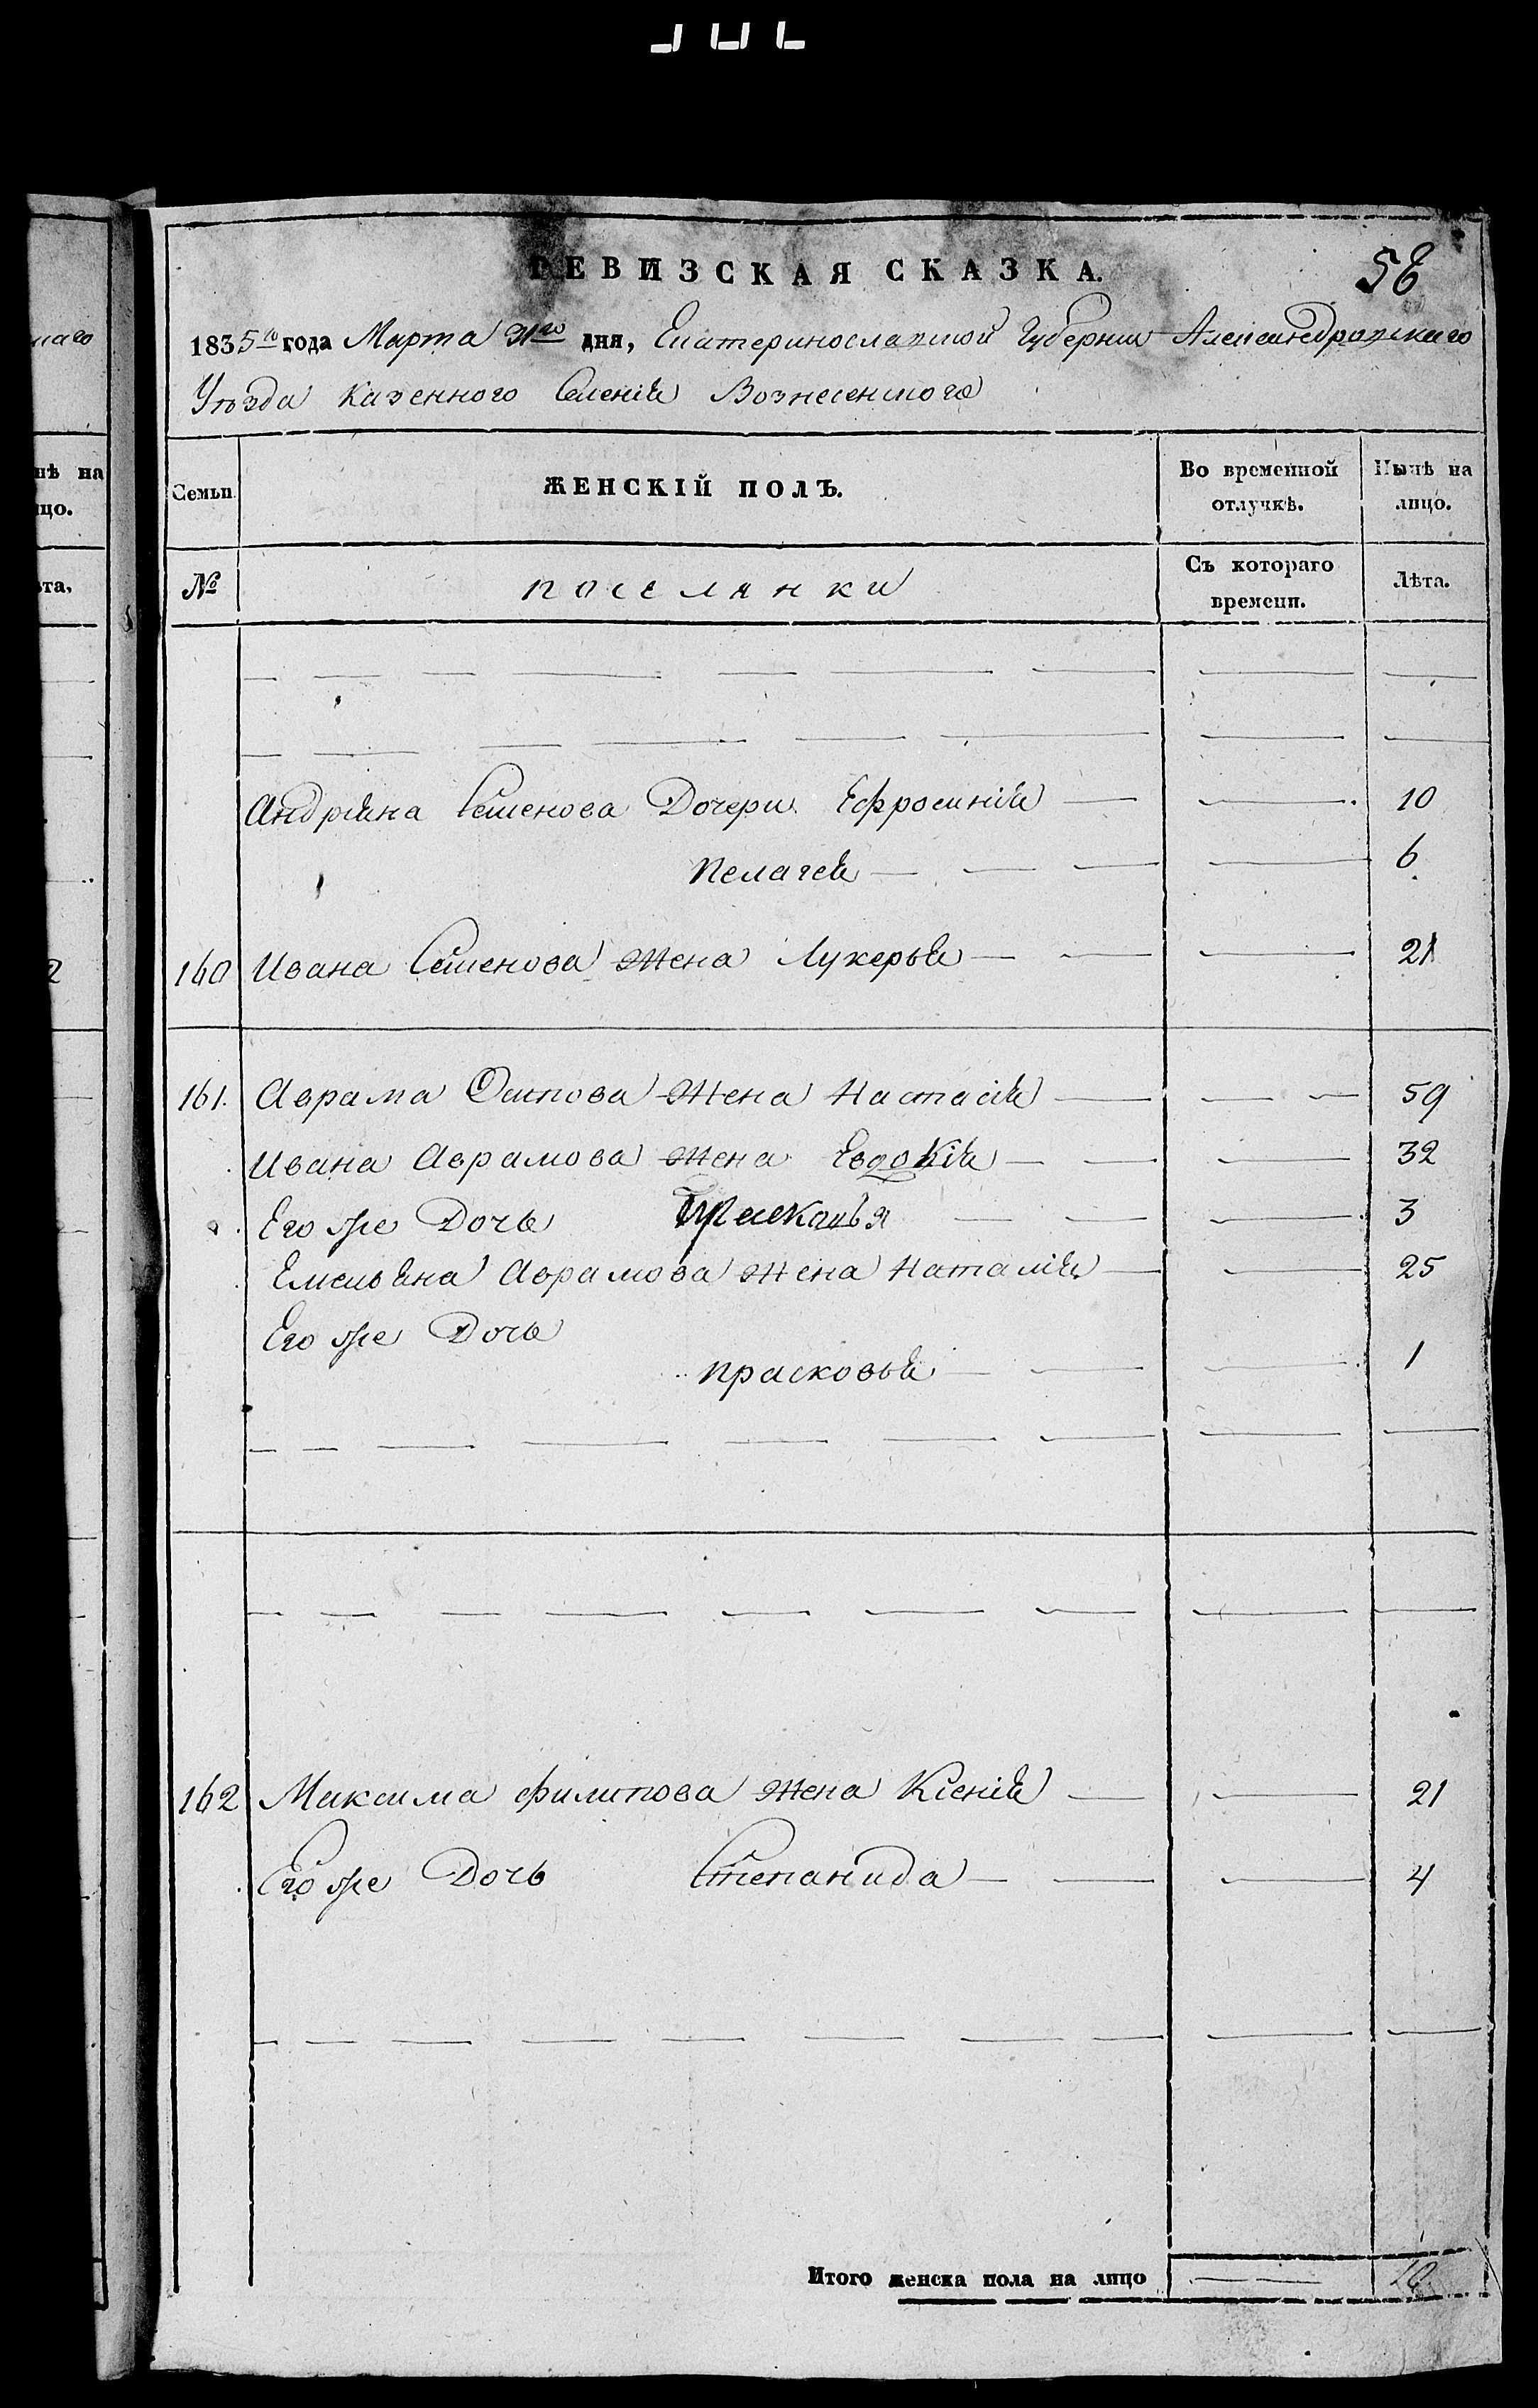 РЕВИЗСКАЯ СКАЗКА.
1835го года Марта 31го дня, Екатеринославской Губернии Александровскаго
Уѣзда Казенного Селенія Вознесенского
Семьи
ЖЕНСКІЙ ПОЛЪ.
Во временной отлучкѣ.
Нынѣ на лицо.
№
поселянки
Съ котораго времени.
Лѣта.
Андріяна Семенова Дочери Ефросинія 10
Пелагея 6
160 Ивана Семенова Жена Лукерья 21
161. Аврама Осипова Жена Настасія 59
Ивана Аврамова Жена Евдокія 32
Его же Дочь 3
Емельяна Аврамова Жена Наталія 25
Его же Дочь
прасковья 1
162 Максима Филипова Жена Ксенія 21
Его же Дочь Степанида 4
Итого женска пола на лицо 10